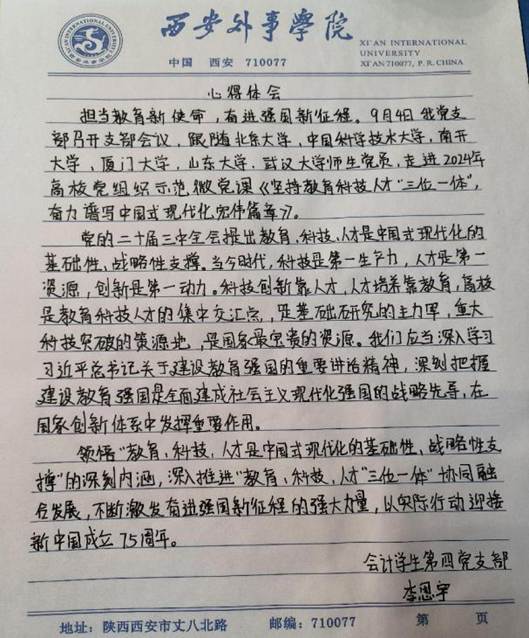 西安外事學院
XI'AN INTERNATIONAL
UNIVERSITY
XI'AN 710077, P. R. CHINA
中国 西安 710077
心得体会
担当教育新使命,奋进强国新征程。9月4日我党支
部召开支部会议,跟随北京大学,中国科学技术大学,南开
大学,厦门大学,山东大学,武汉大学师生党员,走进2024年
高校党组织示范微党课《坚持教育科技人才“三位一体”,
奋力谱写中国式现代化宏伟篇章》。
党的二十届三中全会提出教育、科技、人才是中国式现代化的
基础性、战略性支撑。当今时代,科技是第一生产力,人才是第一
资源,创新是第一动力。科技创新靠人才,人才培养靠教育,高校
是教育科技人才的集中交汇点,是基础研究的主力军,重大
科技突破的策源地,是国家最宝贵的资源。我们应当深入学习
习近平总书记关于建设教育强国的重要讲话精神,深刻把握
建设教育强国是全面建成社会主义现代化强国的战略先导,在
国家创新体系中发挥重要作用。
领悟“教育、科技、人才是中国式现代化的基础性、战略性支
撑”的深刻内涵,深入推进“教育、科技、人才”三位一体”协同融
合发展,不断激发奋进强国新征程的强大力量,以实际行动迎接
新中国成立75周年。
会计学生第四党支部
李思宇
地址:陕西西安市丈八北路 邮编:710077 第 页